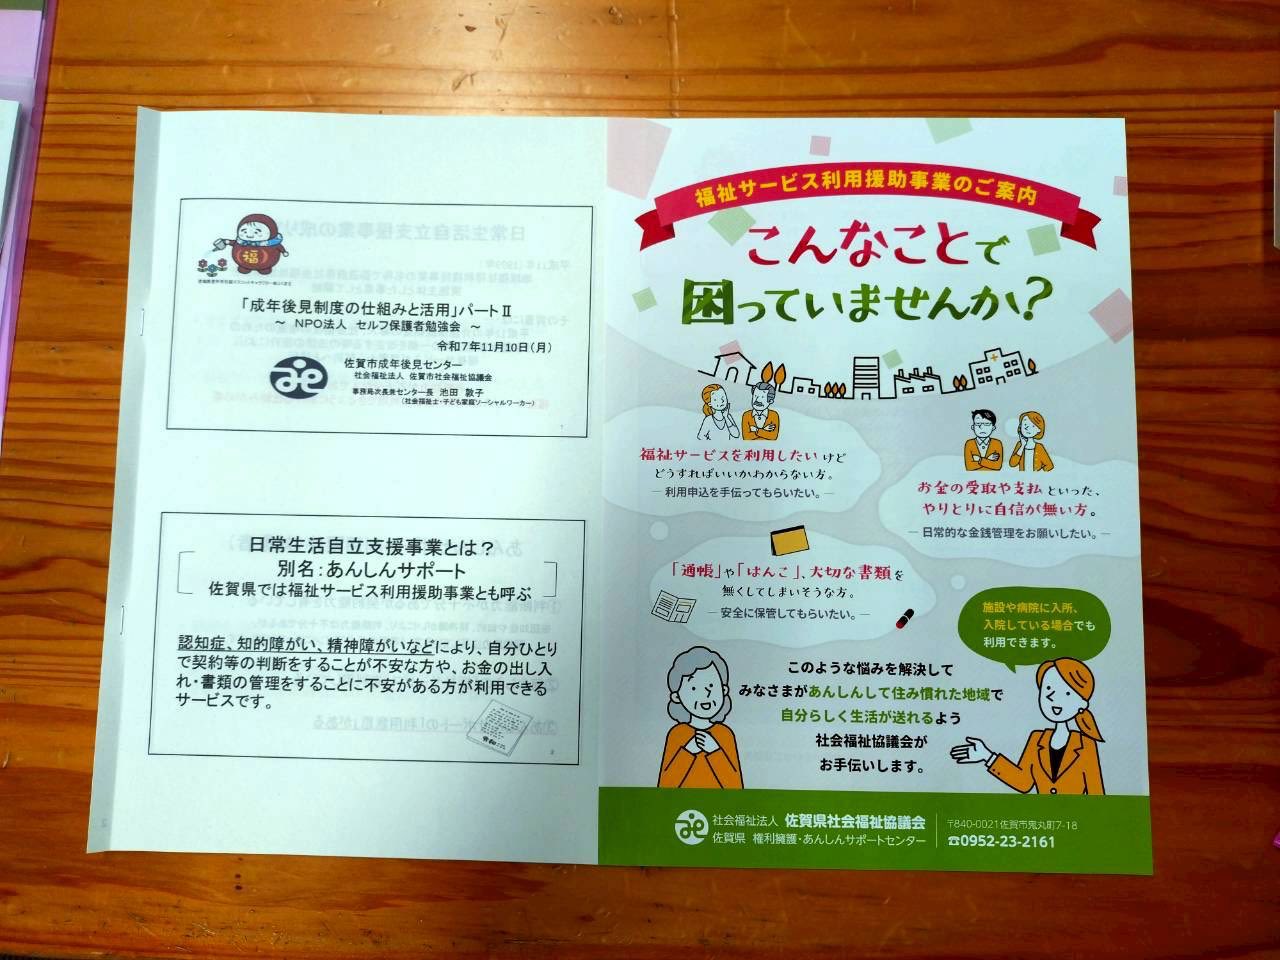 「成年後見制度の仕組みと活用」パートⅡ
～ NPO法人 セルフ保護者勉強会 ～
令和7年11月10日(月)
佐賀市成年後見センター
社会福祉法人 佐賀市社会福祉協議会
事務局次長兼センター長 池田 敦子
(社会福祉士・子ども家庭ソーシャルワーカー)
1
日常生活自立支援事業とは？
別名：あんしんサポート
佐賀県では福祉サービス利用援助事業とも呼ぶ
認知症、知的障がい、精神障がいなどにより、自分ひとり
で契約等の判断をすることが不安な方や、お金の出し入
れ・書類の管理をすることに不安がある方が利用できる
サービスです。
2
福祉サービス利用援助事業のご案内
こんなことで
困っていませんか？
福祉サービスを利用したいけど
どうすればいいかわからない方。
―利用申込を手伝ってもらいたい。―
お金の受取や支払といった、
やりとりに自信が無い方。
―日常的な金銭管理をお願いしたい。―
「通帳」や「はんこ」、大切な書類を
無くしてしまいそうな方。
―安全に保管してもらいたい。―
施設や病院に入所、
入院している場合でも
利用できます。
このような悩みを解決して
みなさまがあんしんして住み慣れた地域で
自分らしく生活が送れるよう
社会福祉協議会が
お手伝いします。
社会福祉法人 佐賀県社会福祉協議会
佐賀県 権利擁護・あんしんサポートセンター
〒840-0021佐賀市鬼丸町7-18
☎0952-23-2161